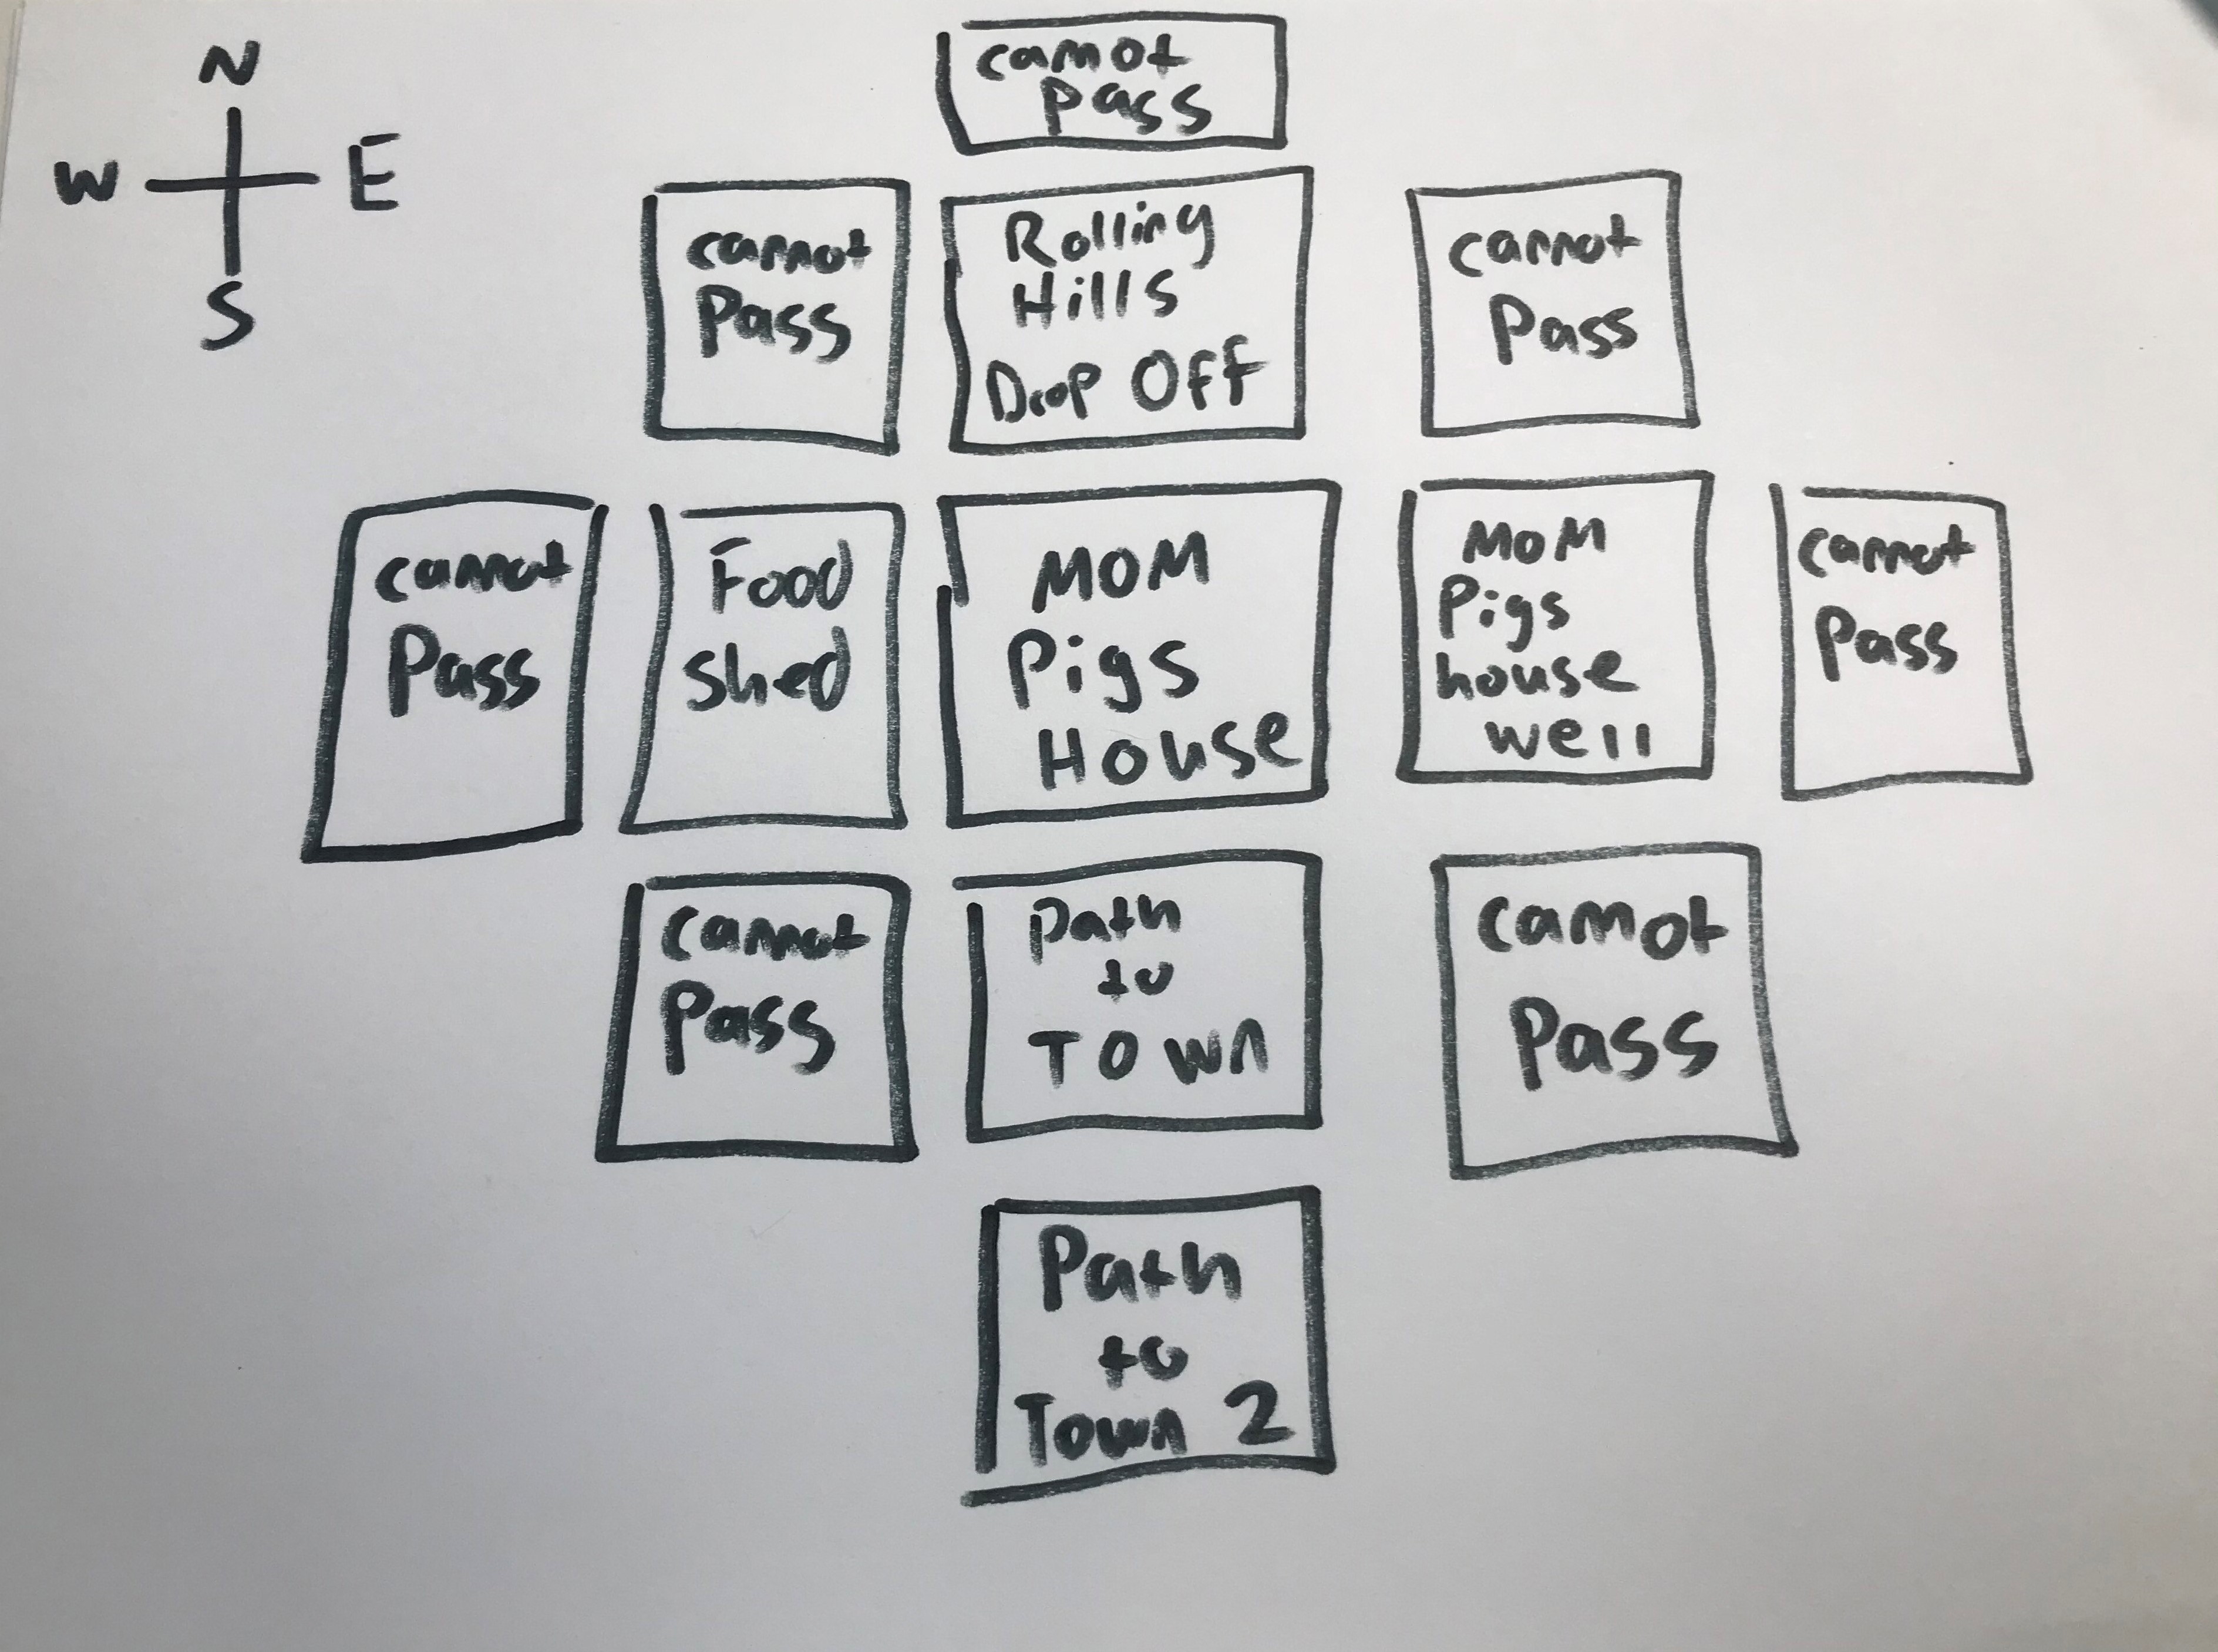 N
W E
S
cannot
pass
cannot
Pass
Rolling
Hills
Drop Off
cannot
Pass
cannot
Pass
Food
shed
MOM
Pigs
House
MOM
Pigs
house
well
cannot
Pass
cannot
Pass
path
to
TOWN
cannot
Pass
Path
to
Town 2